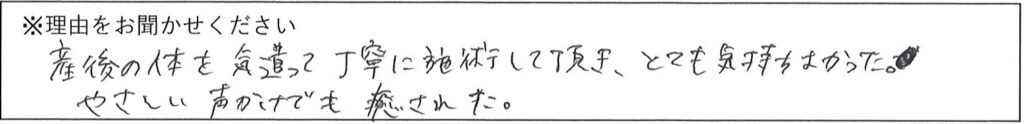 ※理由をお聞かせください
産後の体を気遣って丁寧に施術して頂き、とても気持ちよかった。
やさしい声かけでも癒された。